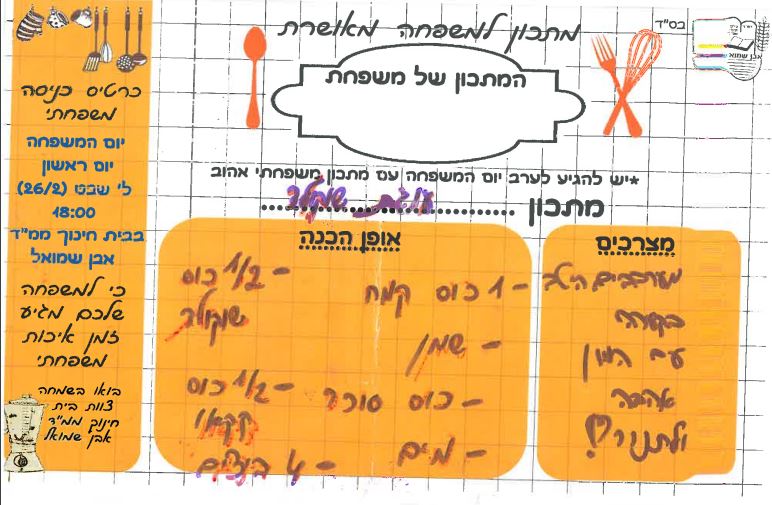 בס"ד
אבן שמואל
מתכון למשפחה מאושרת
המתכון של משפחת
*יש להגיע לערב יום המשפחה עם מתכון משפחתי אהוב
מתכון עוגת שוקולד
מצרכים
מערבבים היטב
בקערה
עם המון
אהבה
ולתנור!
אופן הכנה
- 1 כוס קמח
- שמן
- כוס סוכר
- מים
- 1/2 כוס
שוקולד
- 1/2 כוס
קקאו
- 4 ביצים
כרטיס כניסה
משפחתי
יום המשפחה
יום ראשון
ל' שבט (26/2)
18:00
בבית חינוך ממ"ד
אבן שמואל
כי למשפחה
שלכם מגיע
זמן איכות
משפחתי
בואו בשמחה
צוות בית
חינוך ממ"ד
אבן שמואל